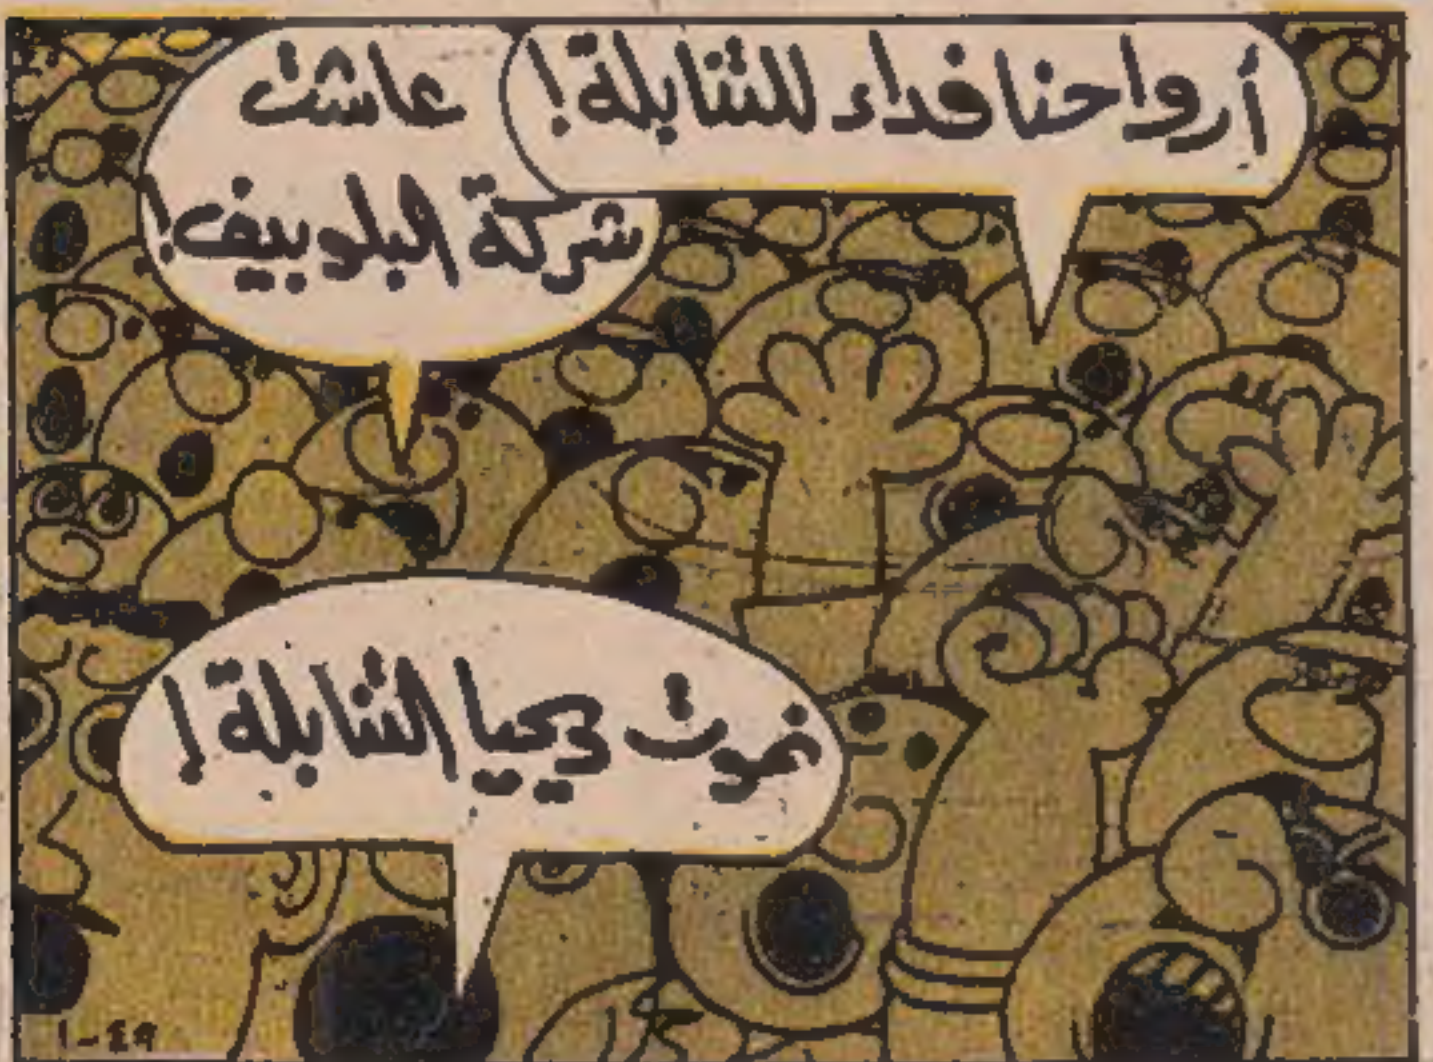 أرواحنا فداء للتنابلة!
عاشت
شركة البلوبيف!
نموت ويحيا التنابلة!
١-٤٩